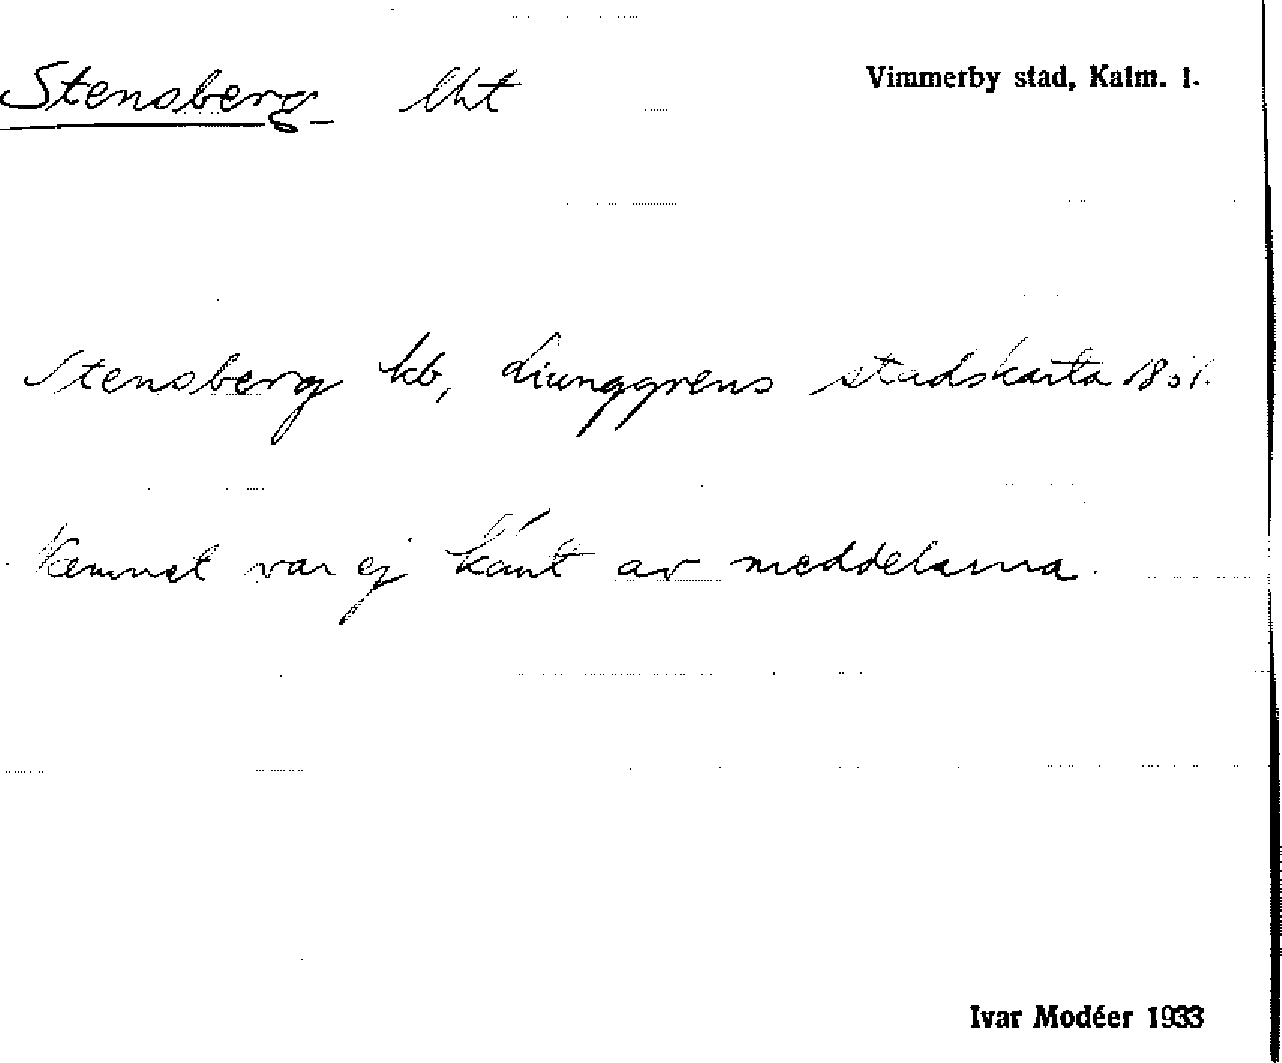 Stensberg lht Vimmerby stad, Kalm. l.
Stensberg lht, Liunggrens stadskarta
Namnet var ej känt av meddelarna.
Ivar Modéer 1933